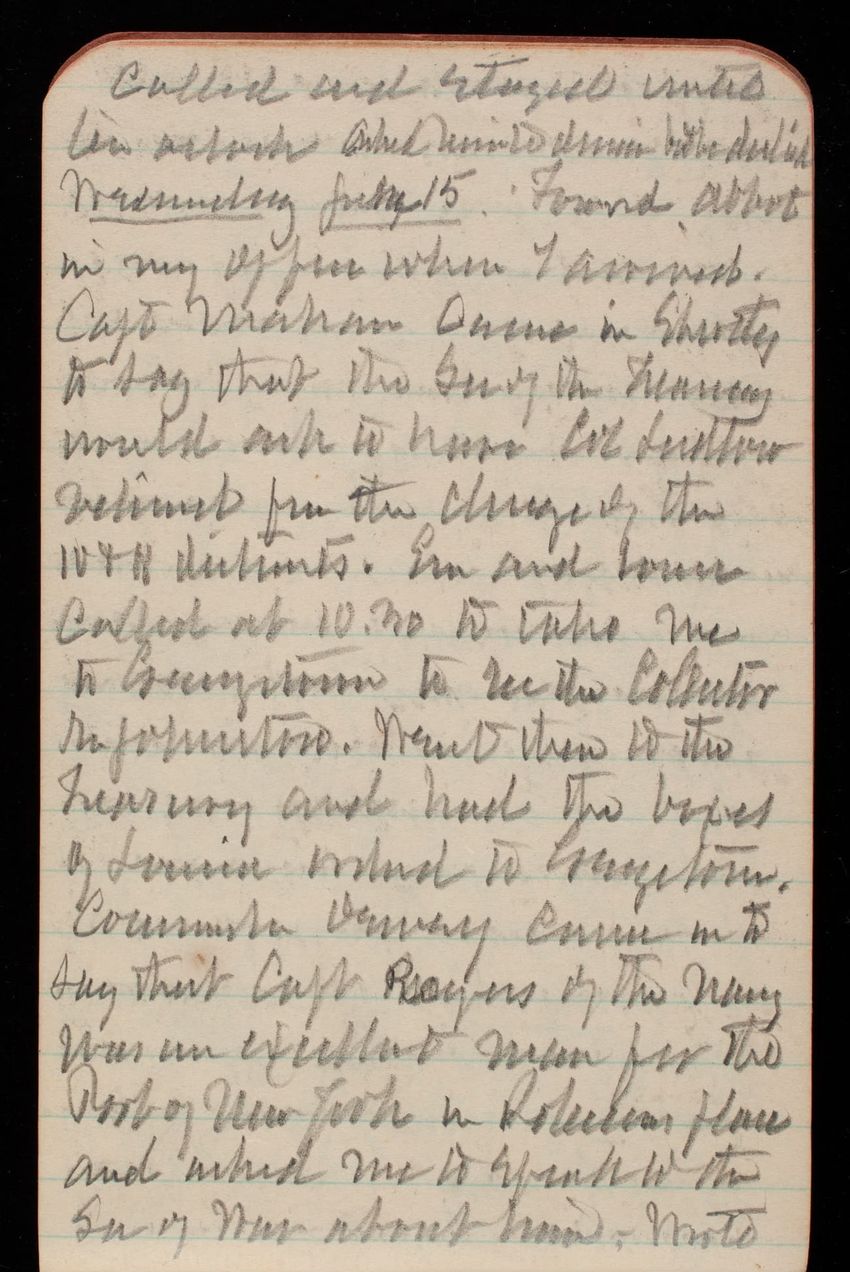 Called and stayed until
ten oclock asked him to dinner but he declined
Wednesday July 15. Found Abbot
in my office when I arrived.
Capt Mahan came in shortly
to say that the Sec of the Treasury
would ask to have Col Ludlow
relieved from the charge of the
10 & 11 districts. Em and
called at 10.30 to take me
to Georgetown to see the Collector
Went then to the
Treasury and had the boxes
of ordered to Georgetown.
Commander Dewey came in to
say that Capt Rodgers of the Navy
was an excellent man for the
Port of New York in place
and asked me to speak to the
Sec of War about him. Wrote